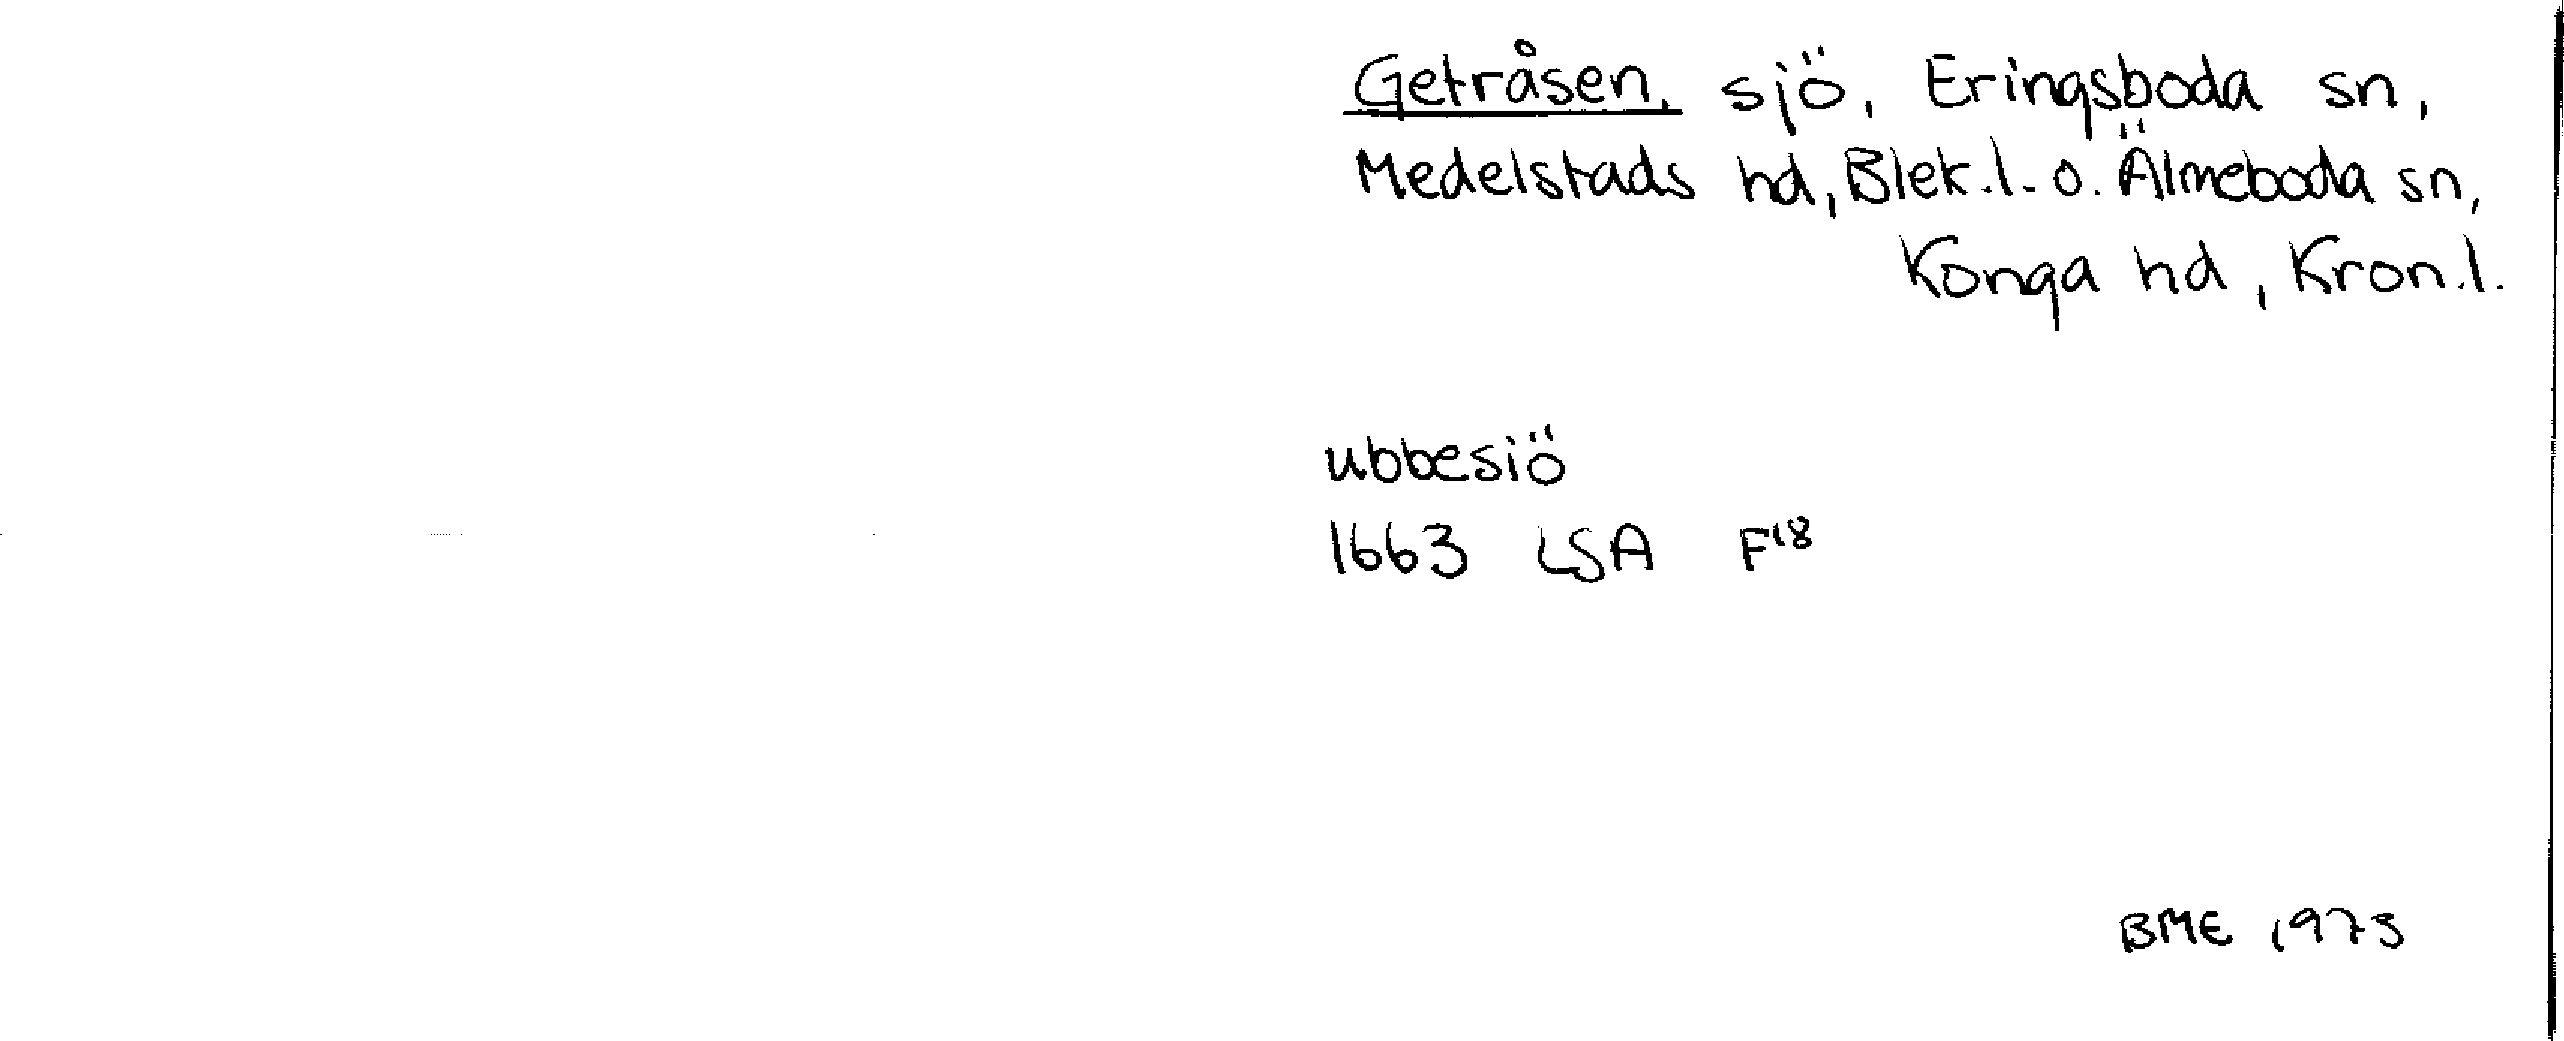 Getråsen, sjö, Eringsboda sn,
Medelstads hd, Blek.l. o. Älmeboda sn,
Konga hd, Kron.l.
ubbesiö
1663 LSA F18
BME 1973